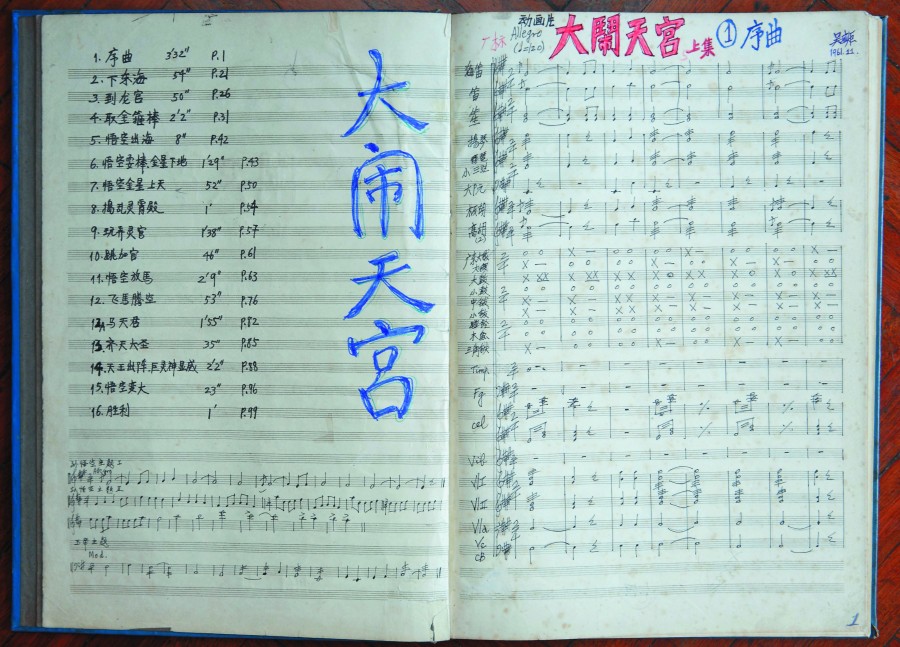 1. 序曲 3′32″ P.1
2. 下东海 54″ P.21
3. 到龙宫 50″ P.26
4. 取金箍棒 2′2″ P.31
5. 悟空出海 8″ P.42
6. 悟空耍棒,金星下地 1′29″ P.43
7. 悟空金星上天 52″ P.50
8. 捣乱灵霄殿 1′ P.54
9. 玩弄灵官 1′38″ P.57
10. 跳加官 46″ P.61
11. 悟空放馬 2′9″ P.63
12. 飞馬腾空 53″ P.76
马天君 1′55″ P.82
13. 齐天大圣 35″ P.85
14. 天王出阵,巨灵神显威 2′2″ P.88
15. 悟空变大 23″ P.96
16. 胜利 1′ P.99
大闹天宫
Med.
动画片
Allegro
大鬧天宮 上集 ① 序曲
1961.11.
海笛
笛
笙
揚琴
琵琶
小三弦
大阮
板胡
高胡
大鼓
小鼓
木鱼
三角铁
Timp
Fg
Cel
Vl I
Vl II
Vla
Vc
CB
1